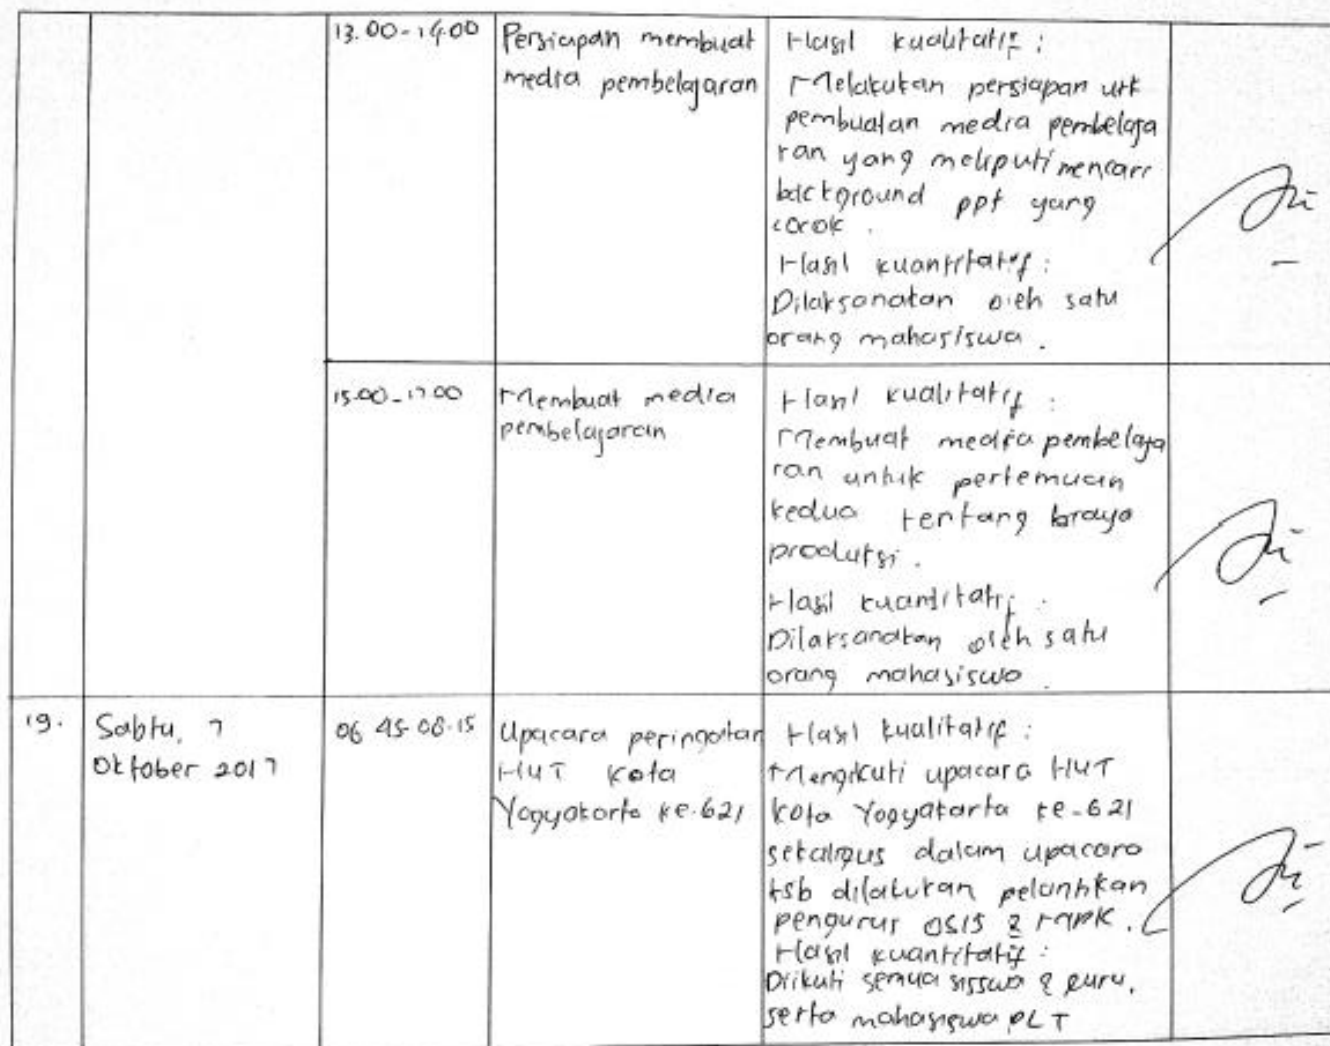 13.00-14.00
Persiapan membuat
media pembelajaran
Hasil kualitatif :
Melakukan persiapan utk
pembuatan media pembelaja
ran yang meliputi mencari
background ppt yang
cocok .
Hasil kuantitatif :
Dilaksanakan oleh satu
orang mahasiswa .
15.00-17.00
Membuat media
pembelajaran
Hasil kualitatif :
Membuat media pembelaja
ran untuk pertemuan
kedua tentang biaya
produksi .
Hasil kuantitatif :
Dilaksanakan oleh satu
orang mahasiswa .
19.
Sabtu, 7
Oktober 2017
06.45-08.15
Upacara peringatan
HUT Kota
Yogyakarta ke-621
Hasil kualitatif :
Mengikuti upacara HUT
Kota Yogyakarta ke-621
sekaligus dalam upacara
tsb dilakukan pelantikan
pengurus OSIS & MPK .
Hasil kuantitatif :
Diikuti semua sisswa & guru,
serta mahasiswa PLT